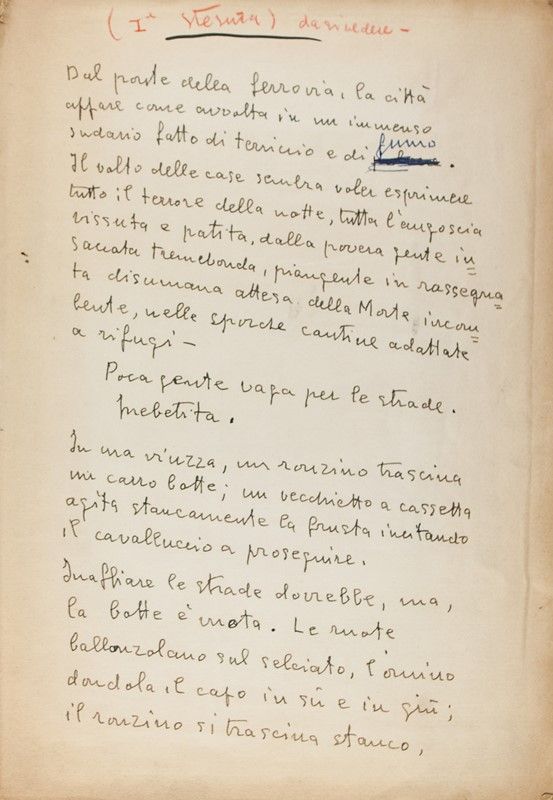 (Iª stesura) da rivedere -
Dal ponte della ferrovia, la città
appare come avvolta in un immenso
sudario fatto di terriccio e di fumo.
Il volto delle case sembra voler esprimere
tutto il terrore della notte, tutta l'angoscia
vissuta e patita, dalla povera gente in=
saccata tremebonda, piangente in rassegna=
ta disumana attesa della Morte incom=
bente, nelle sporche cantine adattate
a rifugi -
Poca gente vaga per le strade.
Inebetita.
In una viuzza, un ronzino trascina
un carro botte; un vecchietto a cassetta
agita stancamente la frusta incitando
il cavalluccio a proseguire.
Inaffiare le strade dovrebbe, ma,
la botte è vuota. Le ruote
ballonzolano sul selciato, l'omino
dondola il capo in sù e in giù;
il ronzino si trascina stanco,